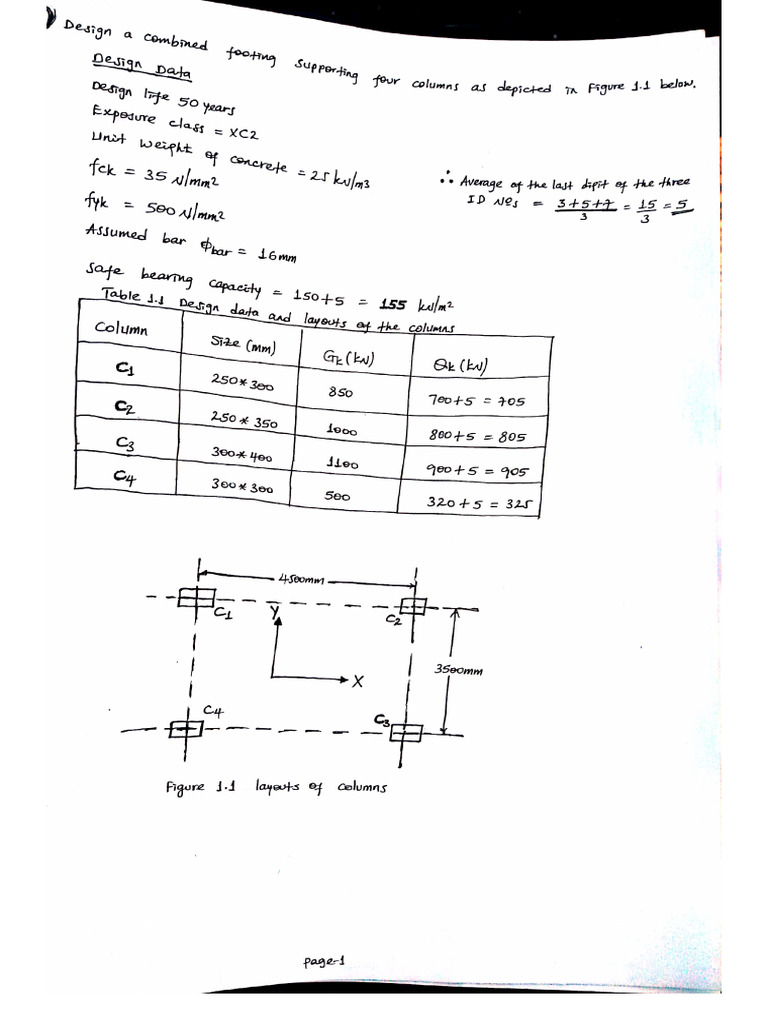 Design a combined footing supporting four columns as depicted in Figure 1.1 below.
Design Data
Design life 50 years
Exposure class = XC2
Unit weight of concrete = 25 kN/m3
fck = 35 N/mm2
∴ Average of the last digit of the three
ID Nos = 3+5+7/3 = 15/3 = 5
fyk = 500 N/mm2
Assumed bar ϕbar = 16mm
Safe bearing capacity = 150+5 = 155 kN/m2
Table 1.1 Design data and layouts of the columns
Column Size (mm) Gk (kN) Qk (kN)
C1 250*300 850 700+5 = 705
C2 250*350 1000 800+5 = 805
C3 300*400 1100 900+5 = 905
C4 300*300 500 320+5 = 325
4500mm
C1
Y
C2
3500mm
X
C4
C3
Figure 1.1 layouts of columns
page-1